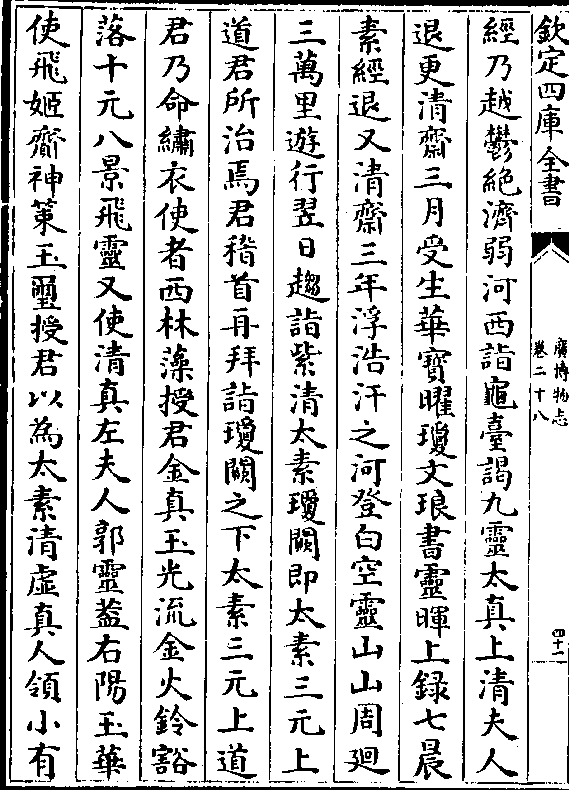 欽定四庫全書
廣博物志
卷二十八
四十一
經乃越鬱絶濟弱河西詣龜臺謁九靈太真上清夫人
退更清齋三月受生華寳曜瓊文琅書靈暉上錄七晨
素經退又清齋三年浮浩汗之河登白空靈山山周廻
三萬里遊行翌日趨詣紫清太素瓊闕即太素三元上
道君所治焉君稽首再拜詣瓊闕之下太素三元上道
君乃命繡衣使者西林藻授君金真玉光流金火鈴豁
落十元八景飛靈又使清真左夫人郭靈葢右陽玉華
使飛姬齎神䇿玉璽授君以為太素清虚真人領小有